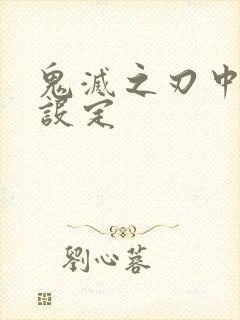 鬼滅之刃中
設定
劉心蓉